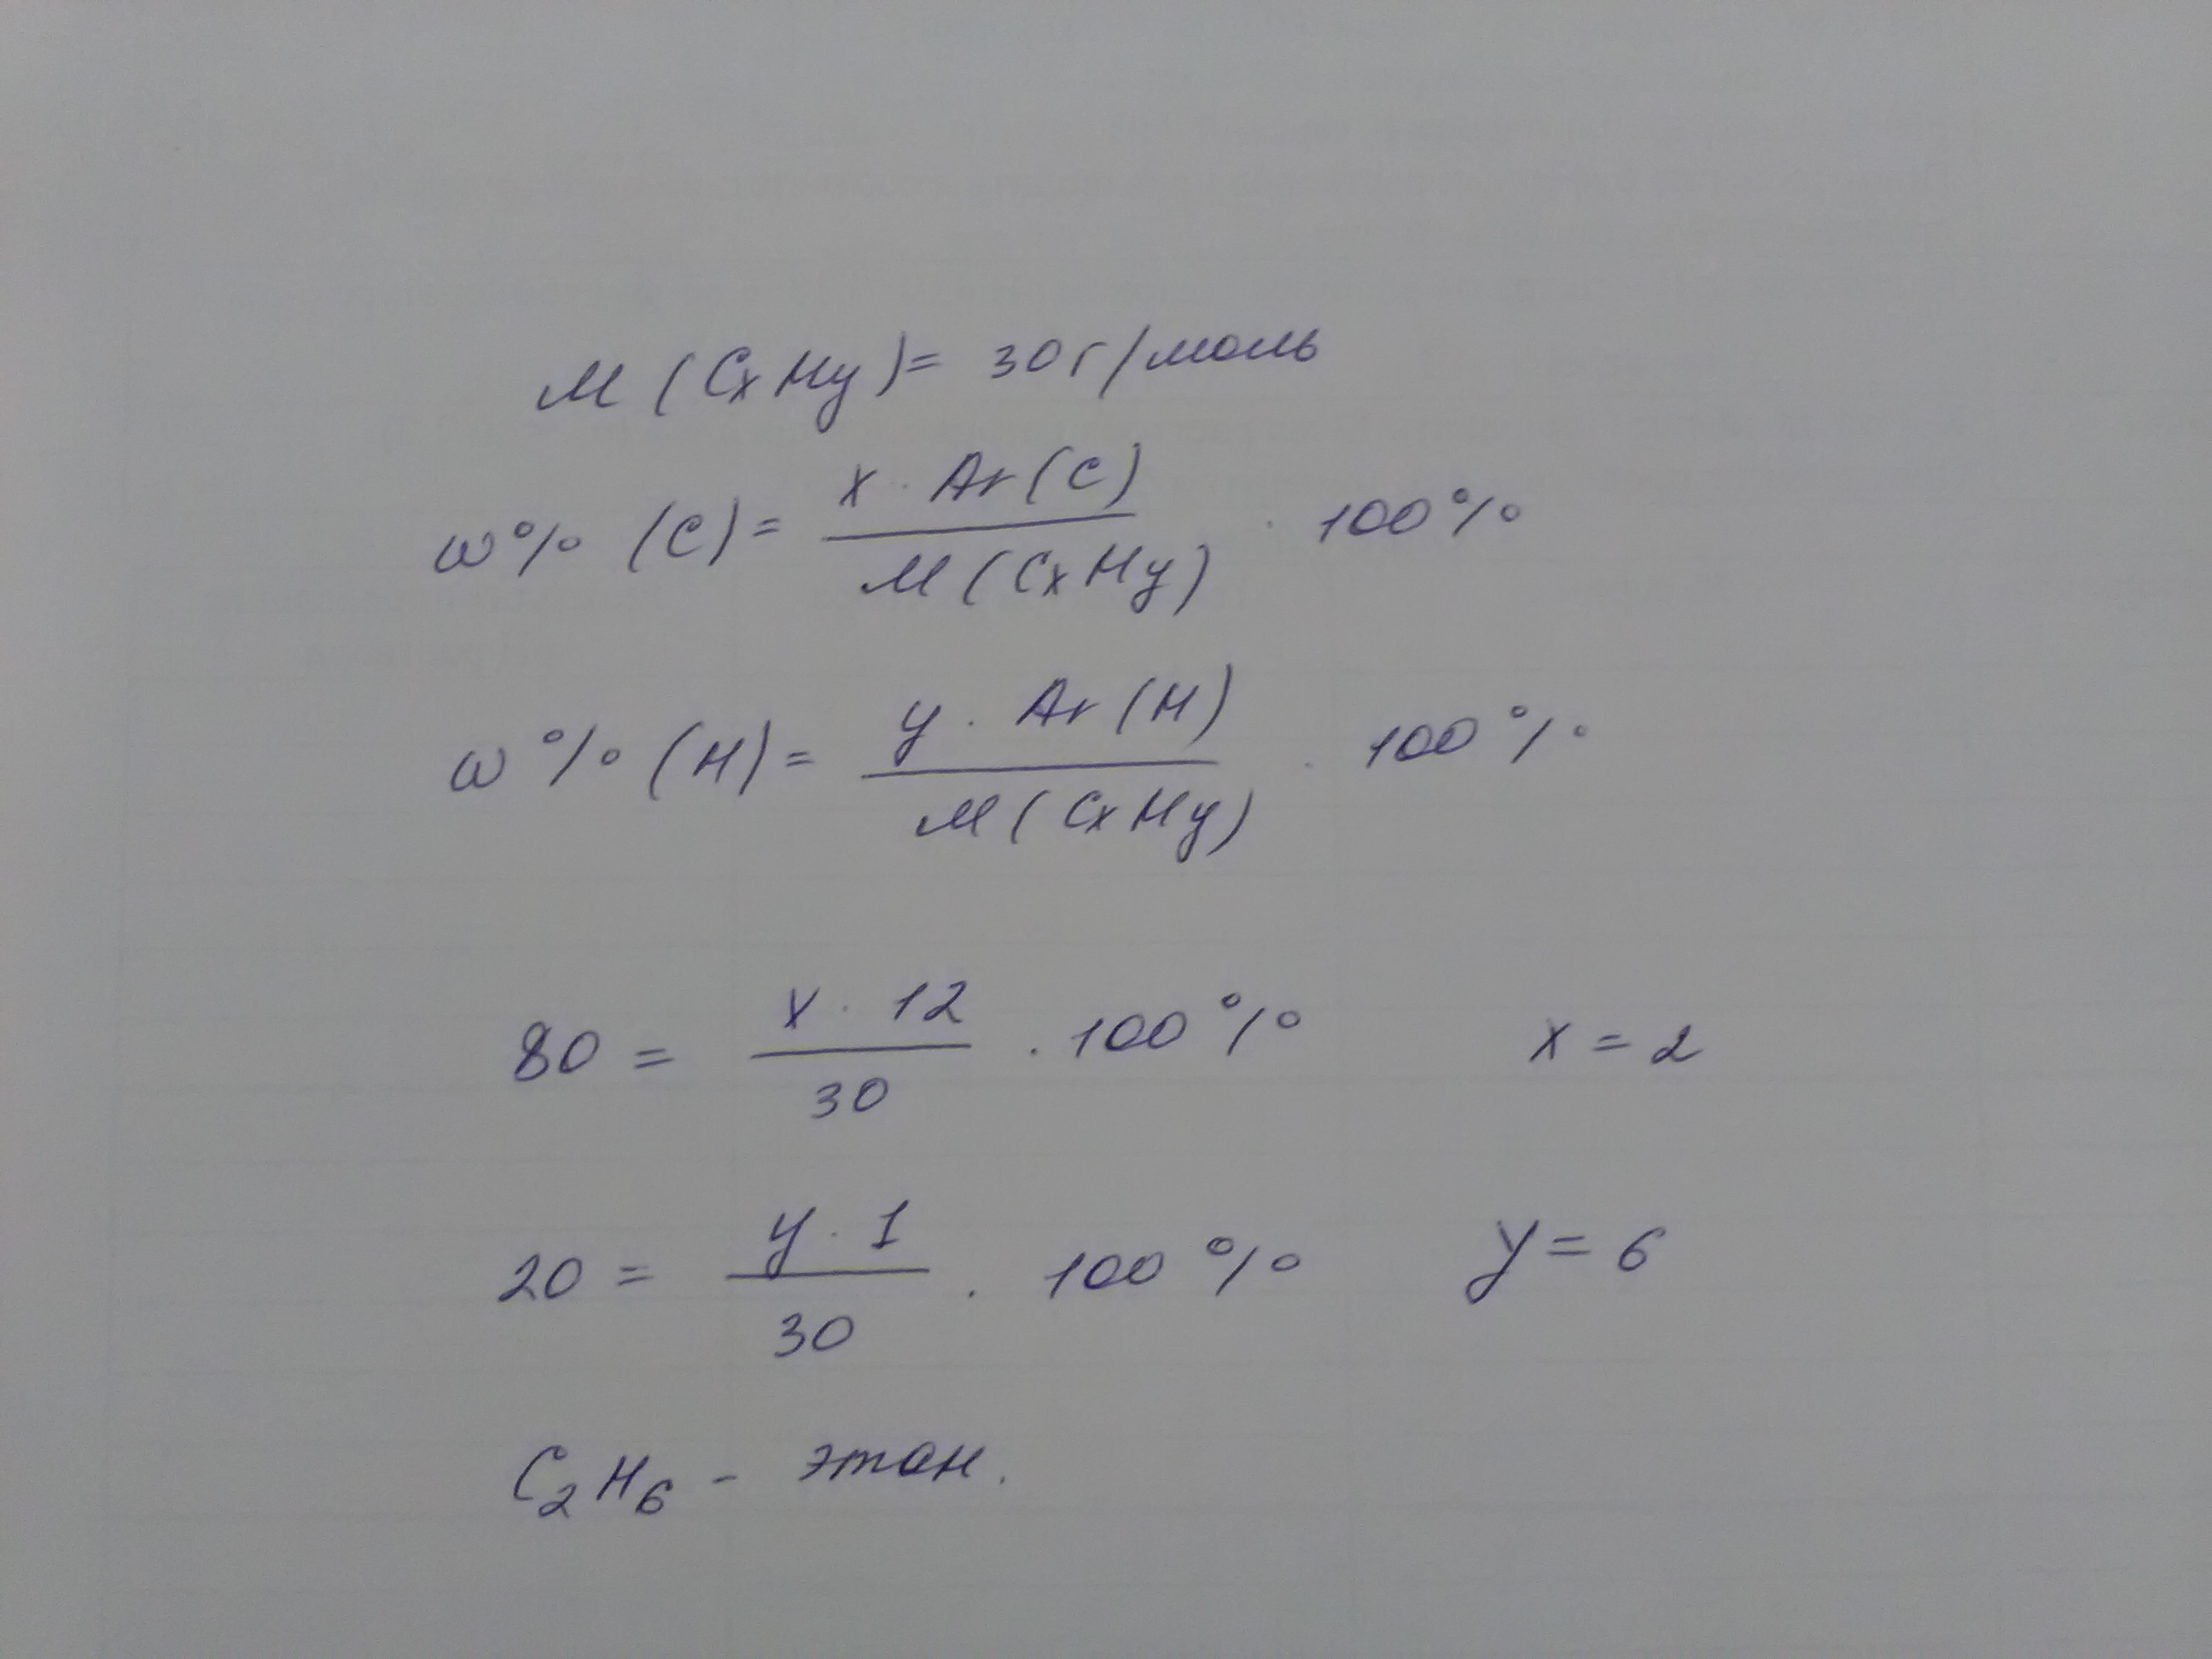 M (CxHy) = 30 г/моль
ω% (C) = x · Ar(C) / M(CxHy) · 100%
ω% (H) = y · Ar(H) / M(CxHy) · 100%
80 = x · 12 / 30 · 100% x = 2
20 = y · 1 / 30 · 100% y = 6
C₂H₆ - этан.